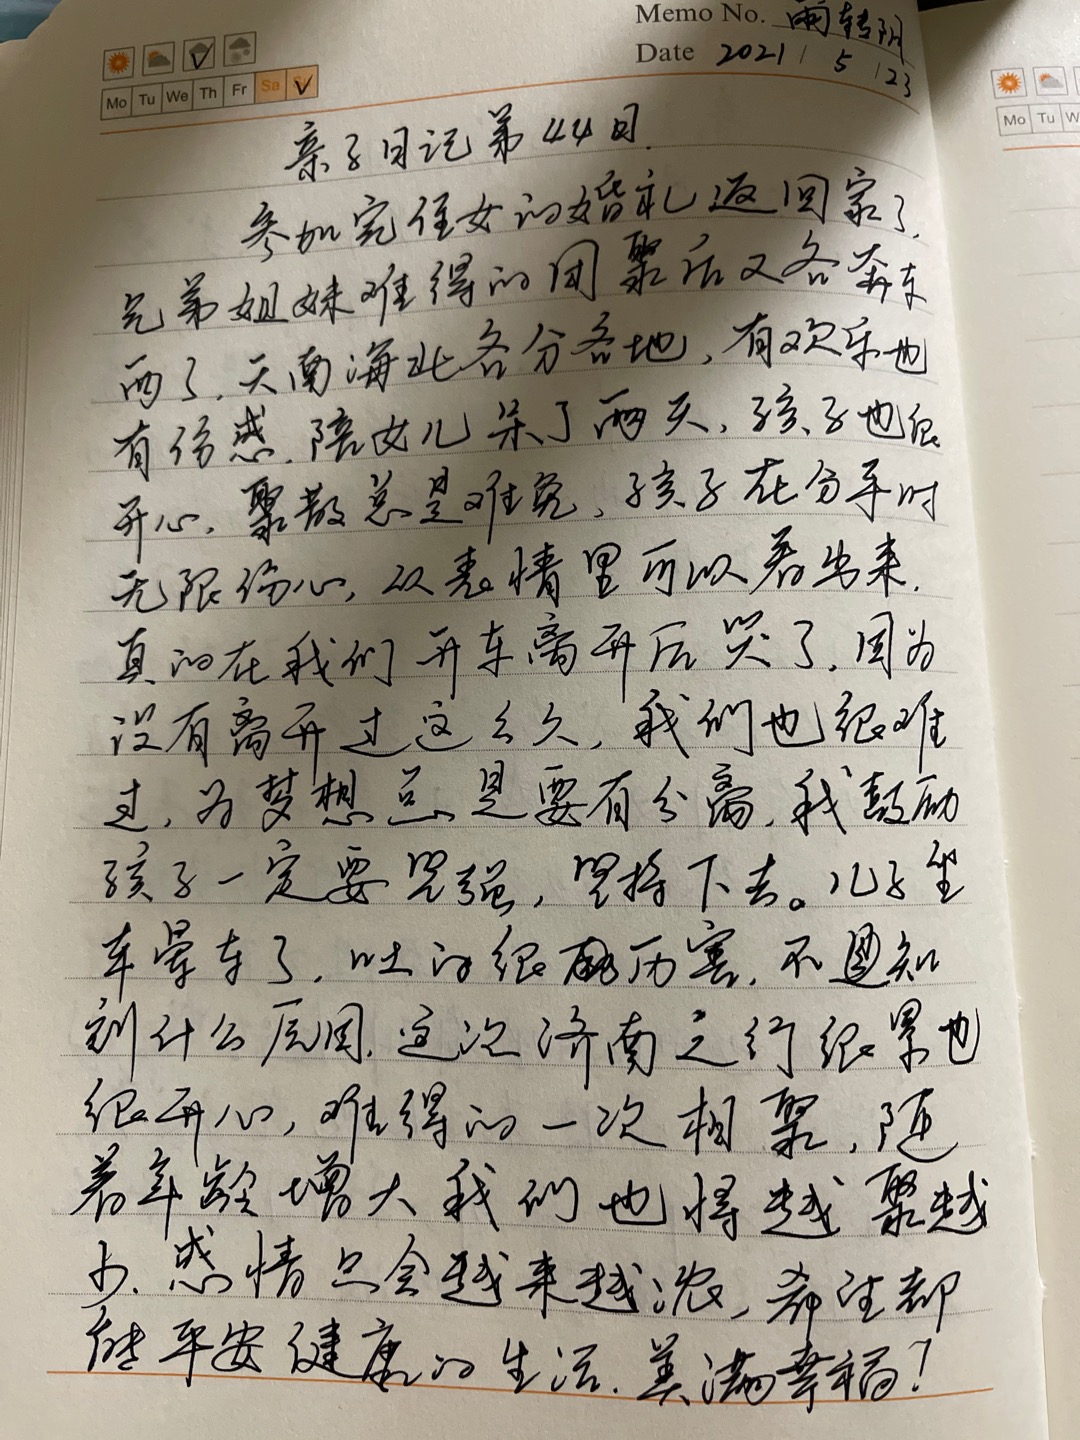 Memo No. 雨转阴
Mo Tu We Th Fr Sa
Date 2021 / 5 / 23
Mo Tu W
亲子日记第44日.
参加完侄女的婚礼返回家了.
兄弟姐妹难得的团聚后又各奔东
西了.天南海北各分各地,有欢乐也
有伤感.陪女儿呆了两天,孩子也很
开心.聚散总是难免,孩子在分手时
无限伤心,从表情里可以看出来.
真的在我们开车离开后哭了.因为
没有离开过这么久,我们也很难
过,为梦想总是要有分离.我鼓励
孩子一定要坚强,坚持下去。儿子坐
车晕车了.吐的很厉害.不知
到什么原因.这次济南之行很累也
很开心,难得的一次相聚.随
着年龄增大我们也将越聚越
少.感情只会越来越浓,希望都
能平安健康的生活.美满幸福!